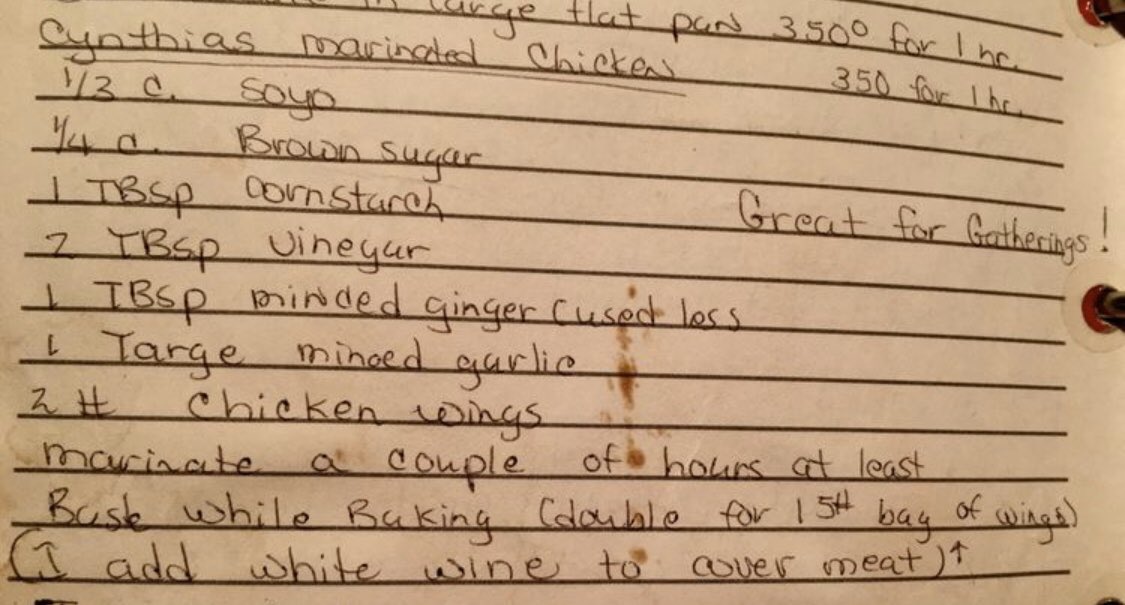 in large flat pan 350° for 1 hr.
Cynthias marinated Chicken 350 for 1 hr.
1/3 c. soyo
1/4 c. Brown sugar
1 TBsp cornstarch
Great for Gatherings!
2 TBsp vinegar
1 TBsp minded ginger (used less
1 Targe minced garlic
2 # chicken wings
marinate a couple of hours at least
Baste while Baking (double for 15# bag of wings)
(I add white wine to cover meat)↑